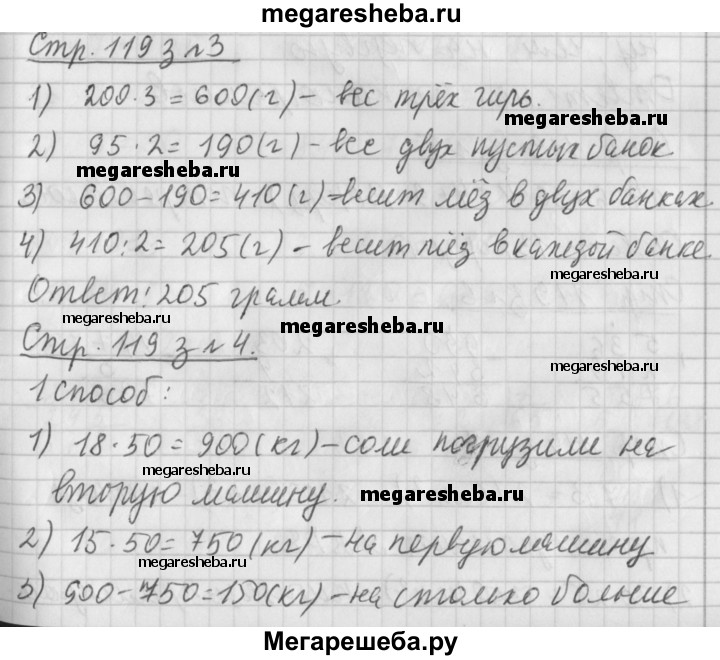 megaresheba.ru
Стр. 119 з №3
1) 200·3=600(г)– вес трёх гирь.
megaresheba.ru
2) 95·2=190(г)–вес двух пустых банок
megaresheba.ru
3) 600–190=410(г)=весит мёд в двух банках.
4) 410:2=205(г)–весит мёд в каждой банке.
megaresheba.ru
Ответ: 205 грамм.
megaresheba.ru
megaresheba.ru
Стр. 119 з №4.
megaresheba.ru
1 способ:
1) 18·50=900(кг)–соли погрузили на
megaresheba.ru
вторую машину.
megaresheba.ru
2) 15·50=750(кг)–на первую машину
megaresheba.ru
3) 900–750=150(кг)–на столько больше
Мегарешеба.ру